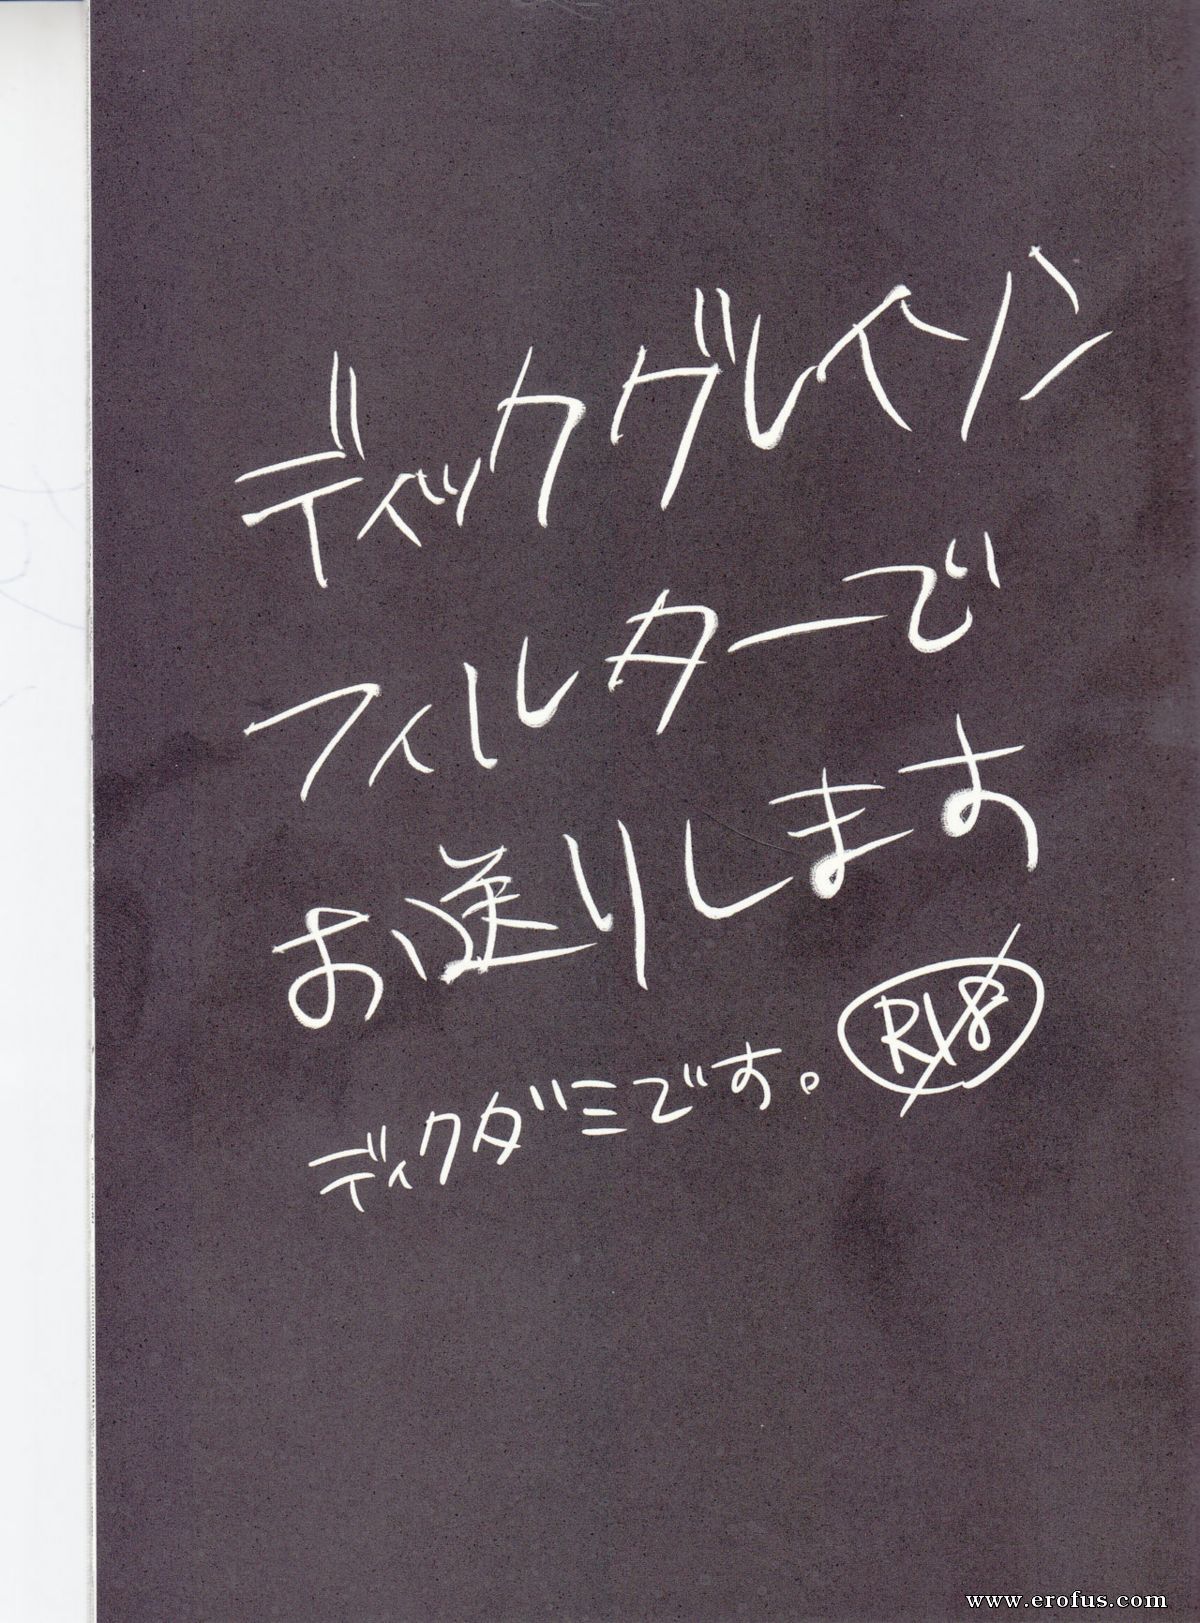 ディックグレイソン
フィルターで
お送りします
R18
ディクダミです。
www.erofus.com